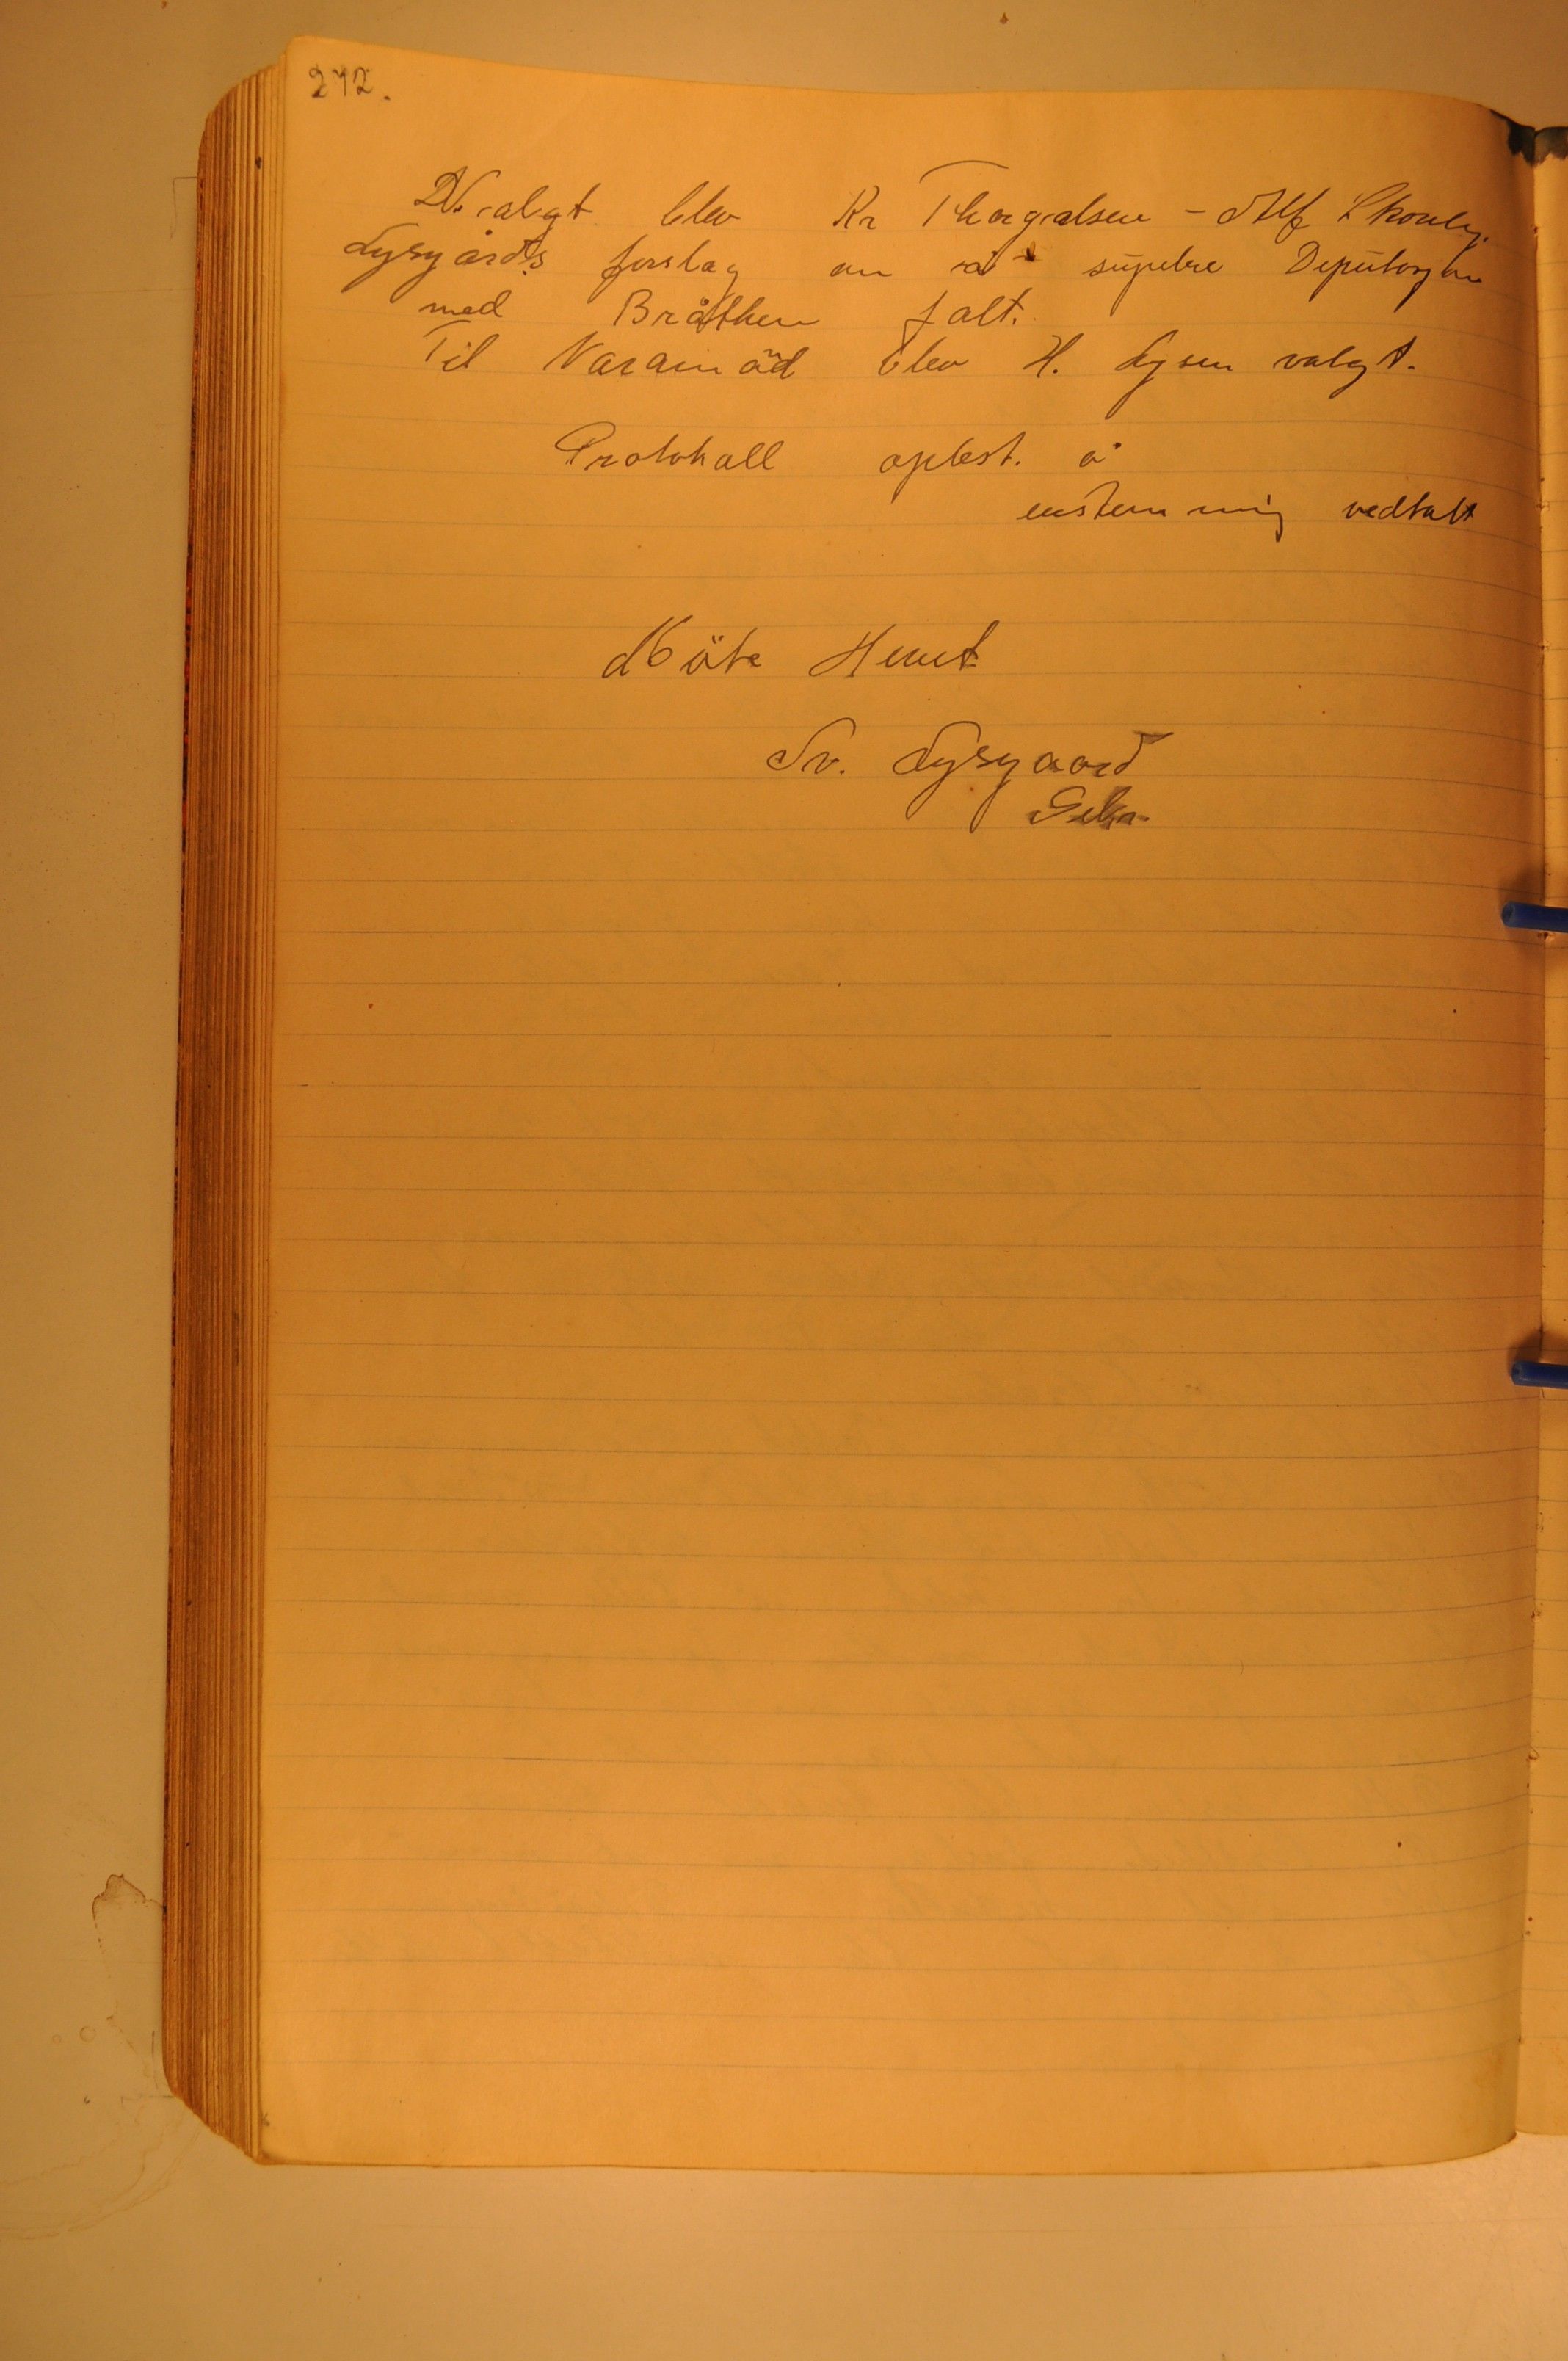 272.
Valgt blev Kr Thorgalsen - Alf Skouly.
Lysgårds forslag om å supelre Deputasjon
med Bråthen falt.
Til Varamäd blev H. Lysen valgt.
Protokoll oplest. å
enstemmig vedtatt
Möte Hevet
Sv. Lysgaard
Sekr.